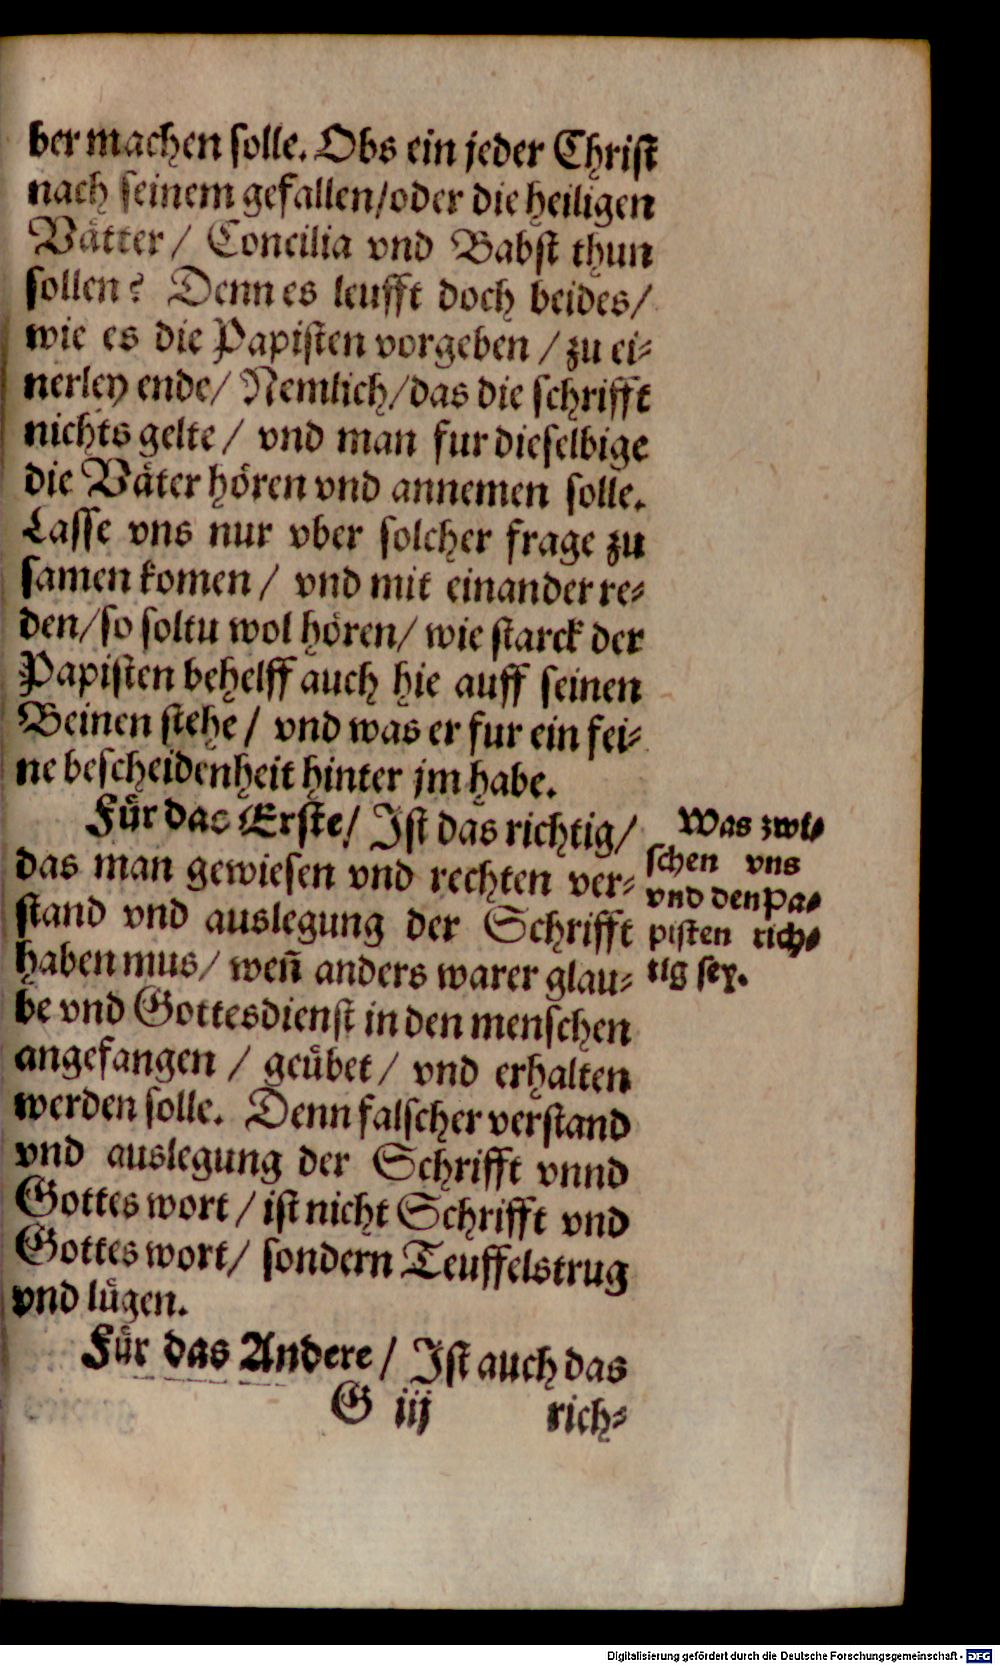 ber machen solle. Obs ein jeder Christ
nach seinem gefallen/oder die heiligen
Vätter/ Concilia vnd Babst thun
sollen? Denn es leufft doch beides/
wie es die Papisten vorgeben / zu ei-
nerley ende/ Nemlich/das die schrifft
nichts gelte/ vnd man fur dieselbige
die Väter hören vnd annemen solle.
Lasse vns nur vber solcher frage zu
samen komen / vnd mit einander re-
den/so soltu wol hören/ wie starck der
Papisten behelff auch hie auff seinen
Beinen stehe / vnd was er fur ein fei-
ne bescheidenheit hinter jm habe.
Für das Erste/ Ist das richtig/
das man gewiesen vnd rechten ver-
stand vnd auslegung der Schrifft
haben mus/ weñ anders warer glau-
be vnd Gottesdienst in den menschen
angefangen / geübet / vnd erhalten
werden solle. Denn falscher verstand
vnd auslegung der Schrifft vnnd
Gottes wort / ist nicht Schrifft vnd
Gottes wort/ sondern Teuffelstrug
vnd lügen.
Für das Andere / Ist auch das
G iij rich-
Was zwi-
schen vns
vnd den Pa-
pisten rich-
tig sey.
Digitalisierung gefördert durch die Deutsche Forschungsgemeinschaft - DFG